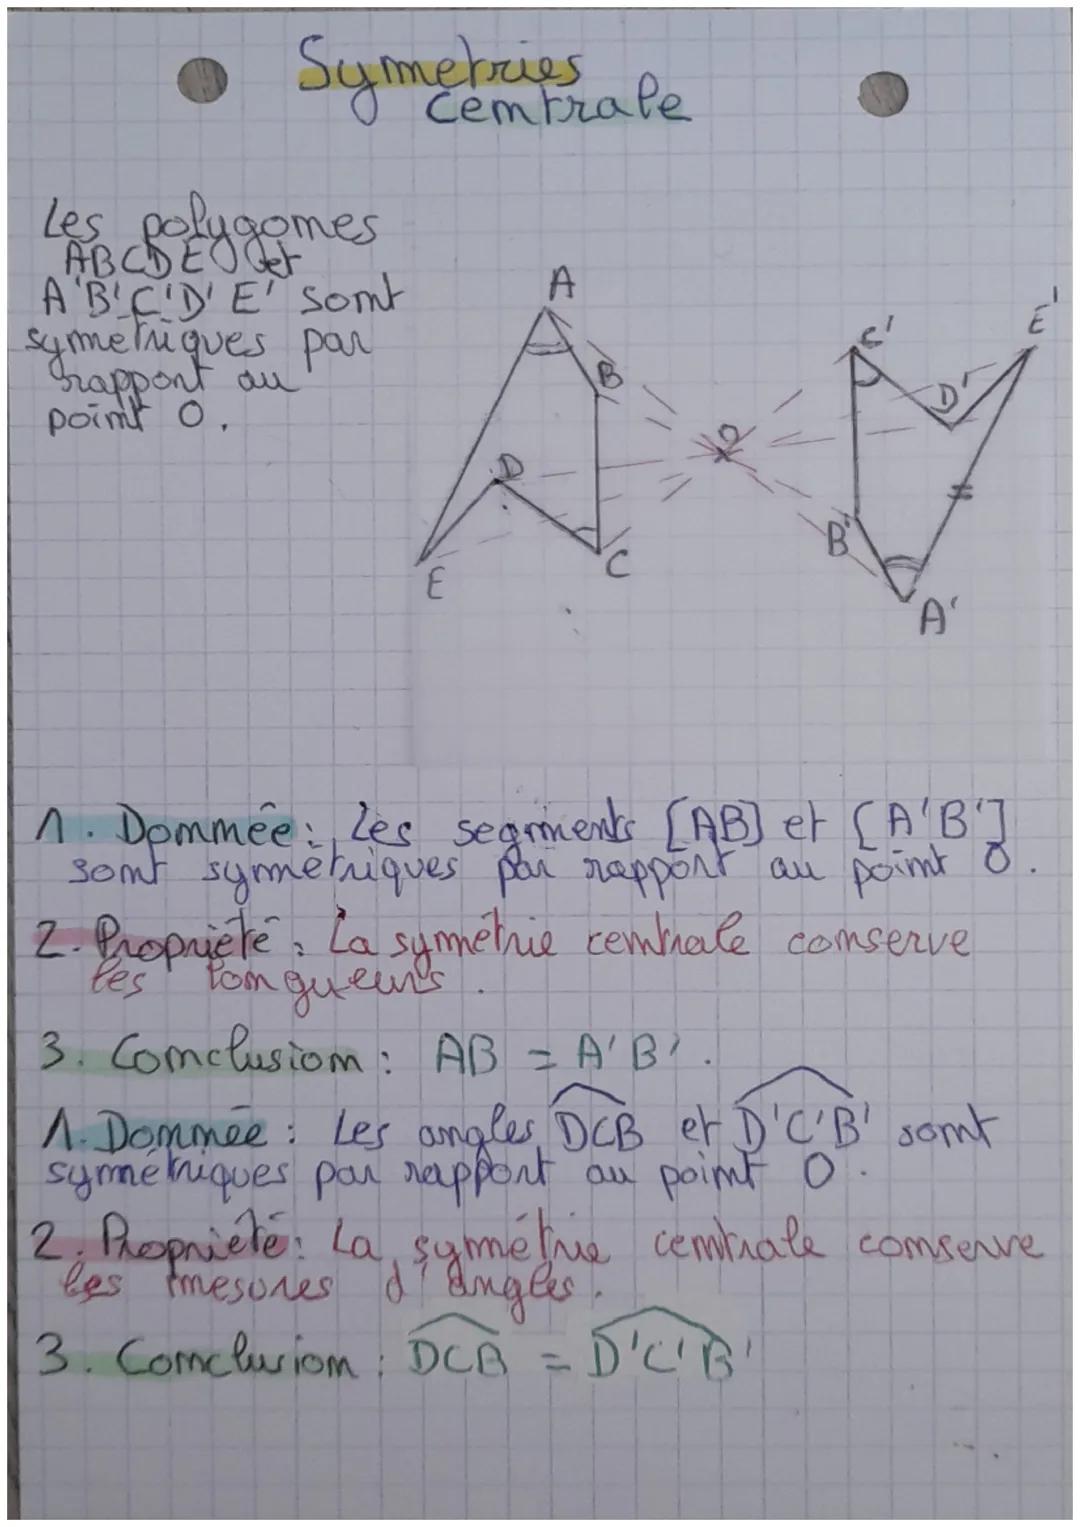 Symetries
centrale
Les polygones
ABCDE et
A'B'C'D'E' sont
symetriques par
rapport au
point O.
A
B
C
D
E
O
C'
E'
D'
B'
A'
1. Donnée : Les segments [AB] et [A'B']
sont symétriques par rapport au point O.
2. Propriété : La symétrie centrale conserve
les longueurs.
3. Conclusion : AB = A'B'.
1. Donnée : Les angles DCB et D'C'B' sont
symétriques par rapport au point O.
2. Propriété : La symétrie centrale conserve
les mesures d'angles.
3. Conclusion : DCB = D'C'B'